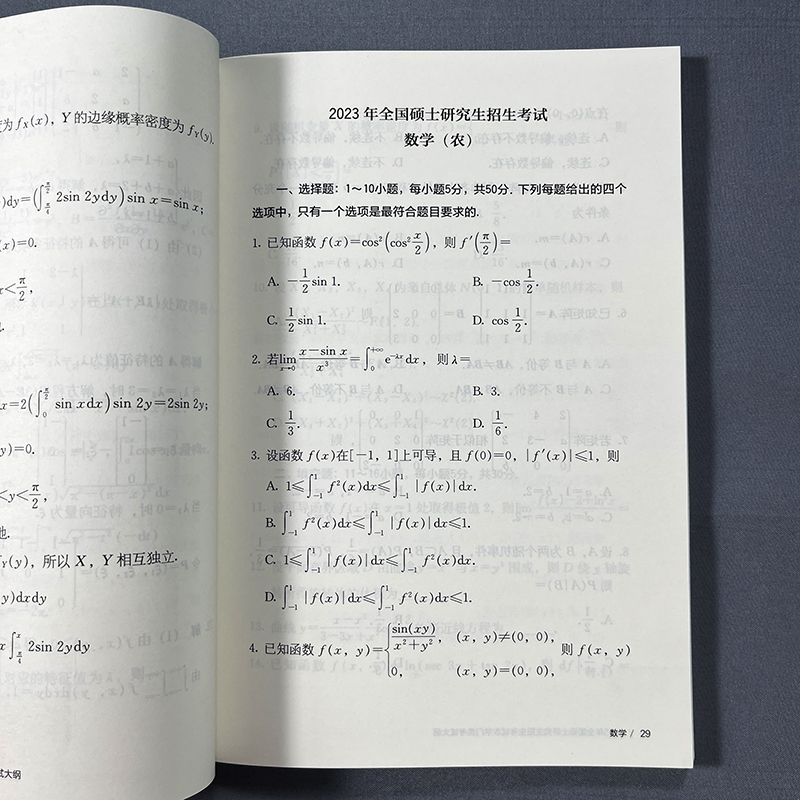 度为 f_X(x)，Y 的边缘概率密度为 f_Y(y).
)dy=(∫_{π/4}^{π/2} 2sin 2ydy)sin x=sin x；
(x)=0.
x<π/2，
x=2(∫_0^{π/2} sin xdx)sin 2y=2sin 2y；
y)=0.
<y<π/2，
f_Y(y)，所以 X，Y 相互独立.
y)dxdy
x∫_{π/4}^{x} 2sin 2ydy
试大纲
2023 年全国硕士研究生招生考试
数学（农）
一、选择题：1～10小题，每小题5分，共50分. 下列每题给出的四个
选项中，只有一个选项是最符合题目要求的.
1. 已知函数 f(x)=cos²(cos² x/2)，则 f′(π/2)=
A. −1/2 sin 1.
B. −cos 1/2.
C. 1/2 sin 1.
D. cos 1/2.
2. 若lim_{x→0} (x−sin x)/x³=∫_0^{+∞} e^{−λx}dx，则 λ=
A. 6.
B. 3.
C. 1/3.
D. 1/6.
3. 设函数 f(x)在[−1, 1]上可导，且 f(0)=0，|f′(x)|≤1，则
A. 1≤∫_{−1}^{1} f²(x)dx≤∫_{−1}^{1} |f(x)|dx.
B. ∫_{−1}^{1} f²(x)dx≤∫_{−1}^{1} |f(x)|dx≤1.
C. 1≤∫_{−1}^{1} |f(x)|dx≤∫_{−1}^{1} f²(x)dx.
D. ∫_{−1}^{1} |f(x)|dx≤∫_{−1}^{1} f²(x)dx≤1.
4. 已知函数 f(x, y)={sin(xy)/(x²+y²)，(x, y)≠(0, 0)， 则 f(x, y)
0，(x, y)=(0, 0)，
数学 / 29